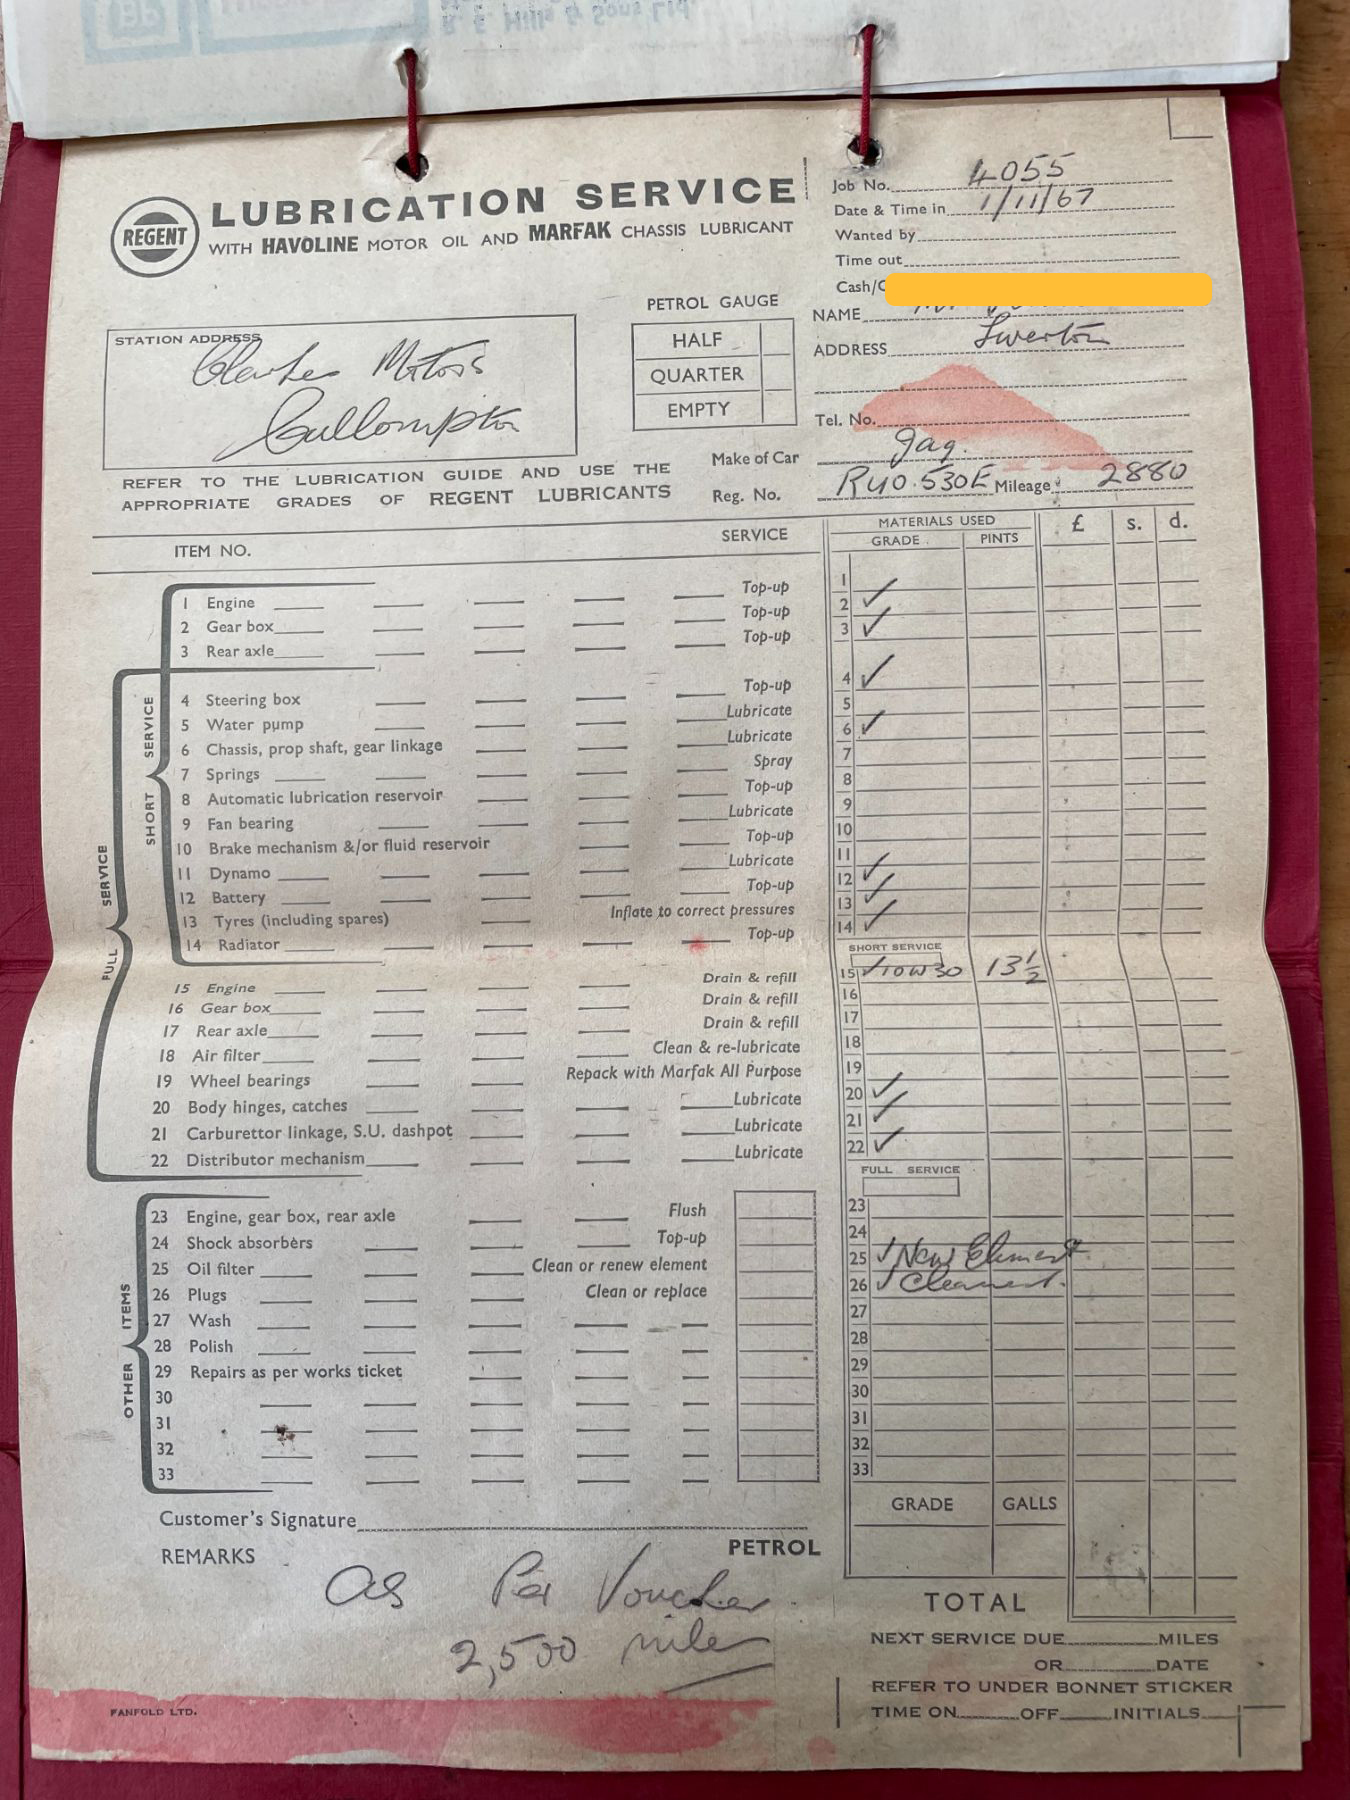 R. E. Hill & Sons Ltd.
REGENT
LUBRICATION SERVICE
WITH HAVOLINE MOTOR OIL AND MARFAK CHASSIS LUBRICANT
Job No. 4055
Date & Time in 1/11/67
Wanted by
Time out
Cash/C
NAME
ADDRESS
Tel. No.
Make of Car Jag.
Reg. No. RUO.530E Mileage 2880
PETROL GAUGE
HALF
QUARTER
EMPTY
STATION ADDRESS
Clarkes Motors
Cullompton
REFER TO THE LUBRICATION GUIDE AND USE THE
APPROPRIATE GRADES OF REGENT LUBRICANTS
ITEM NO. SERVICE
MATERIALS USED £ s. d.
GRADE PINTS
SHORT SERVICE
FULL SERVICE
1 Engine Top-up 1
2 Gear box Top-up 2 ✓
3 Rear axle Top-up 3 ✓
4 Steering box Top-up 4 ✓
5 Water pump Lubricate 5
6 Chassis, prop shaft, gear linkage Lubricate 6 ✓
7 Springs Spray 7
8 Automatic lubrication reservoir Top-up 8
9 Fan bearing Lubricate 9
10 Brake mechanism &/or fluid reservoir Top-up 10
11 Dynamo Lubricate 11
12 Battery Top-up 12 ✓
13 Tyres (including spares) Inflate to correct pressures 13 ✓
14 Radiator Top-up 14 ✓
SHORT SERVICE
15 Engine Drain & refill 15 ✓ 10W30 13½
16 Gear box Drain & refill 16
17 Rear axle Drain & refill 17
18 Air filter Clean & re-lubricate 18
19 Wheel bearings Repack with Marfak All Purpose 19
20 Body hinges, catches Lubricate 20 ✓
21 Carburettor linkage, S.U. dashpot Lubricate 21 ✓
22 Distributor mechanism Lubricate 22 ✓
FULL SERVICE
OTHER ITEMS
23 Engine, gear box, rear axle Flush 23
24 Shock absorbers Top-up 24
25 Oil filter Clean or renew element 25 ✓ New Element
26 Plugs Clean or replace 26 ✓ Cleaned.
27 Wash 27
28 Polish 28
29 Repairs as per works ticket 29
30 30
31 31
32 32
33 33
GRADE GALLS
Customer's Signature
REMARKS PETROL
as Per Voucher.
2,500 miles
TOTAL
NEXT SERVICE DUE MILES
OR DATE
REFER TO UNDER BONNET STICKER
TIME ON OFF INITIALS
FANFOLD LTD.